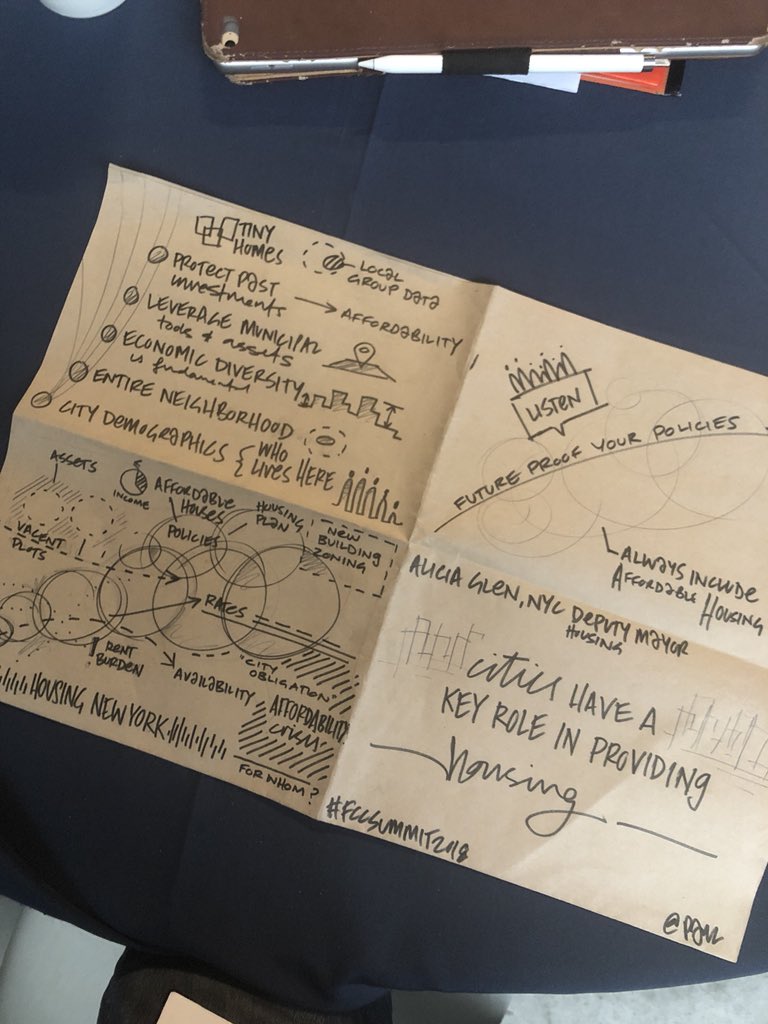 TINY
HOMES
LOCAL
GROUP DATA
PROTECT PAST
investments
AFFORDABILITY
LEVERAGE MUNICIPAL
tools & assets
ECONOMIC DIVERSITY
is fundamental
ENTIRE NEIGHBORHOOD
CITY DEMOGRAPHICS { WHO
LIVES HERE
LISTEN
FUTURE PROOF YOUR POLICIES
ALWAYS INCLUDE
AFFORDABLE HOUSING
ASSETS
$
INCOME
AFFORDABLE
HOUSES
POLICIES
HOUSING
PLAN
NEW
BUILDING
ZONING
VACENT
PLOTS
RATES
RENT
BURDEN
AVAILABILITY
"CITY
OBLIGATION"
HOUSING NEW YORK
AFFORDABILITY
crisis
FOR WHOM?
ALICIA GLEN, NYC DEPUTY MAYOR
HOUSING
cities HAVE A
KEY ROLE IN PROVIDING
housing
#FCCSUMMIT2018